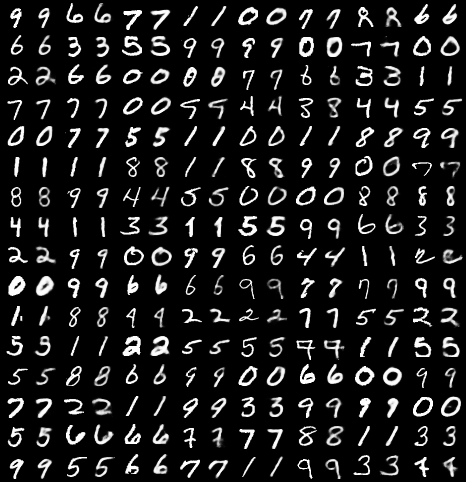 9 9 6 6 7 7 1 1 0 0 7 7 8 8 6 6
6 6 3 3 5 5 9 9 9 9 0 0 7 7 0 0
2 2 6 6 0 0 8 8 7 7 6 6 3 3 1 1
7 7 7 7 0 0 5 5 4 4 3 8 4 4 5 5
0 0 7 7 5 5 1 1 0 0 1 1 8 8 9 9
1 1 1 1 8 8 1 1 8 8 9 9 0 0 7 7
8 8 9 9 4 4 5 5 0 0 0 0 8 8 8 8
4 4 1 1 3 3 1 1 5 5 9 9 6 6 3 3
2 2 9 9 0 0 9 9 6 6 4 4 1 1 2
0 0 9 9 6 6 6 6 9 9 7 7 7 7 9 9
1 1 8 8 9 9 2 2 2 2 7 7 5 5 2 2
5 5 1 1 2 2 5 5 5 5 7 7 1 1 5 5
5 5 8 8 6 6 9 9 0 0 6 6 0 0 9 9
7 7 2 2 1 1 9 9 3 3 9 9 9 9 0 0
5 5 6 6 6 6 7 7 7 7 8 8 1 1 3 3
9 9 5 5 6 6 7 7 1 1 9 9 3 3 4 4